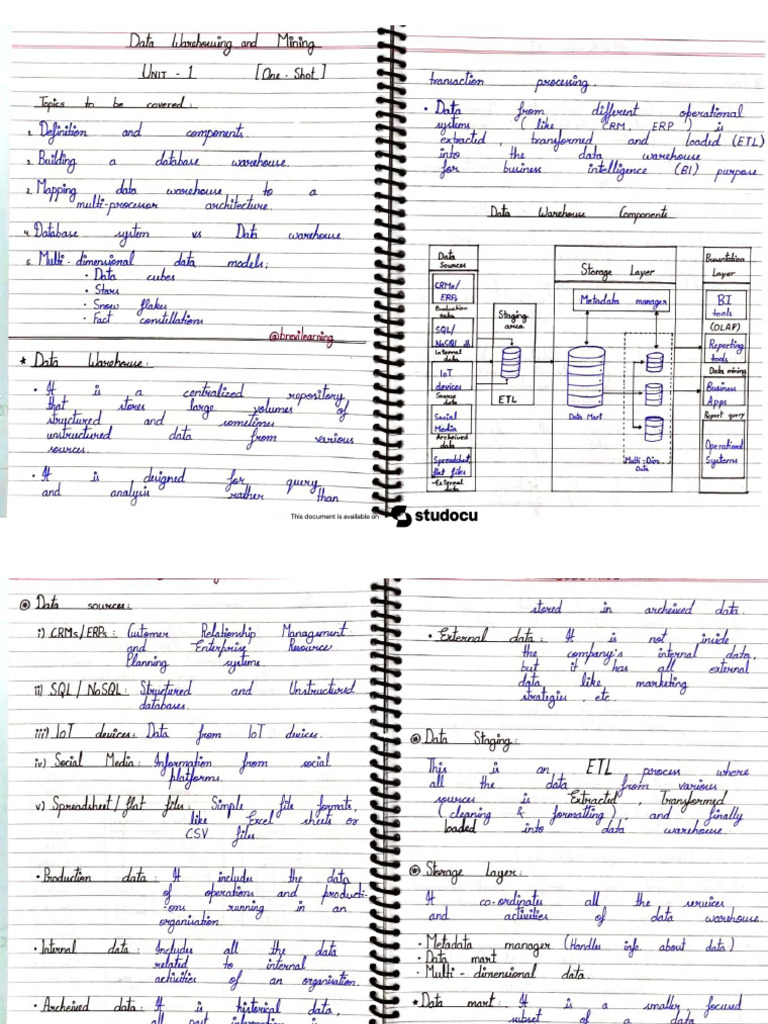 Data Warehousing and Mining
UNIT - 1 [One - Shot]
Topics to be covered:
1. Definition and components.
2. Building a database warehouse.
3. Mapping data warehouse to a
multi-processor architecture.
4. Database system vs Data warehouse.
5. Multi-dimensional data models;
• Data cubes
• Stars
• Snow flakes
• Fact constellations
@brevilearning
* Data Warehouse:
• It is a centralized repository
that stores large volumes of
structured and sometimes
unstructured data from various
sources.
• It is designed for query
and analysis rather than
This document is available on
studocu
transaction processing.
• Data from different operational
system (like CRM, ERP) is
extracted, transformed and loaded (ETL)
into the data warehouse
for business intelligence (BI) purpose
Data Warehouse Components
Data
Sources
CRMs/
ERPs
Production
data
SQL/
NoSQL
Internal
data
IoT
devices
Source
data
Social
Media
Archeived
data
Spreadsheet,
flat files
External
data
Staging
area
ETL
Storage Layer
Metadata manager
Data Mart
Multi-Dim.
Data
Presentation
Layer
BI
tools
(OLAP)
Reporting
tools
Data mining
Business
Apps
Report query
Operational
Systems
Data sources:
i) CRMs/ERPs: Customer Relationship Management
and Enterprise Resource
Planning systems
ii) SQL / NoSQL: Structured and Unstructured
databases.
iii) IoT devices: Data from IoT devices.
iv) Social Media: Information from social
platforms.
v) Spreadsheet/flat files: Simple file formats,
like Excel sheets or
CSV files.
• Production data: It includes the data
of operations and producti-
-ons running in an
organisation.
• Internal data: Includes all the data
related to internal
activities of an organisation.
• Archeived data: It is historical data,
all past information is
stored in archeived data.
• External data: It is not inside
the company's internal data,
but it has all external
data like marketing
strategies, etc.
Data Staging:
This is an ETL process where
all the data from various
sources is Extracted, Transformed
(cleaning & formatting), and finally
loaded into data warehouse.
Storage Layer:
It co-ordinates all the services
and activities of data warehouse.
• Metadata manager (Handles info. about data)
• Data mart
• Multi - dimensional data.
* Data mart: It is a smaller focused
subset of a data